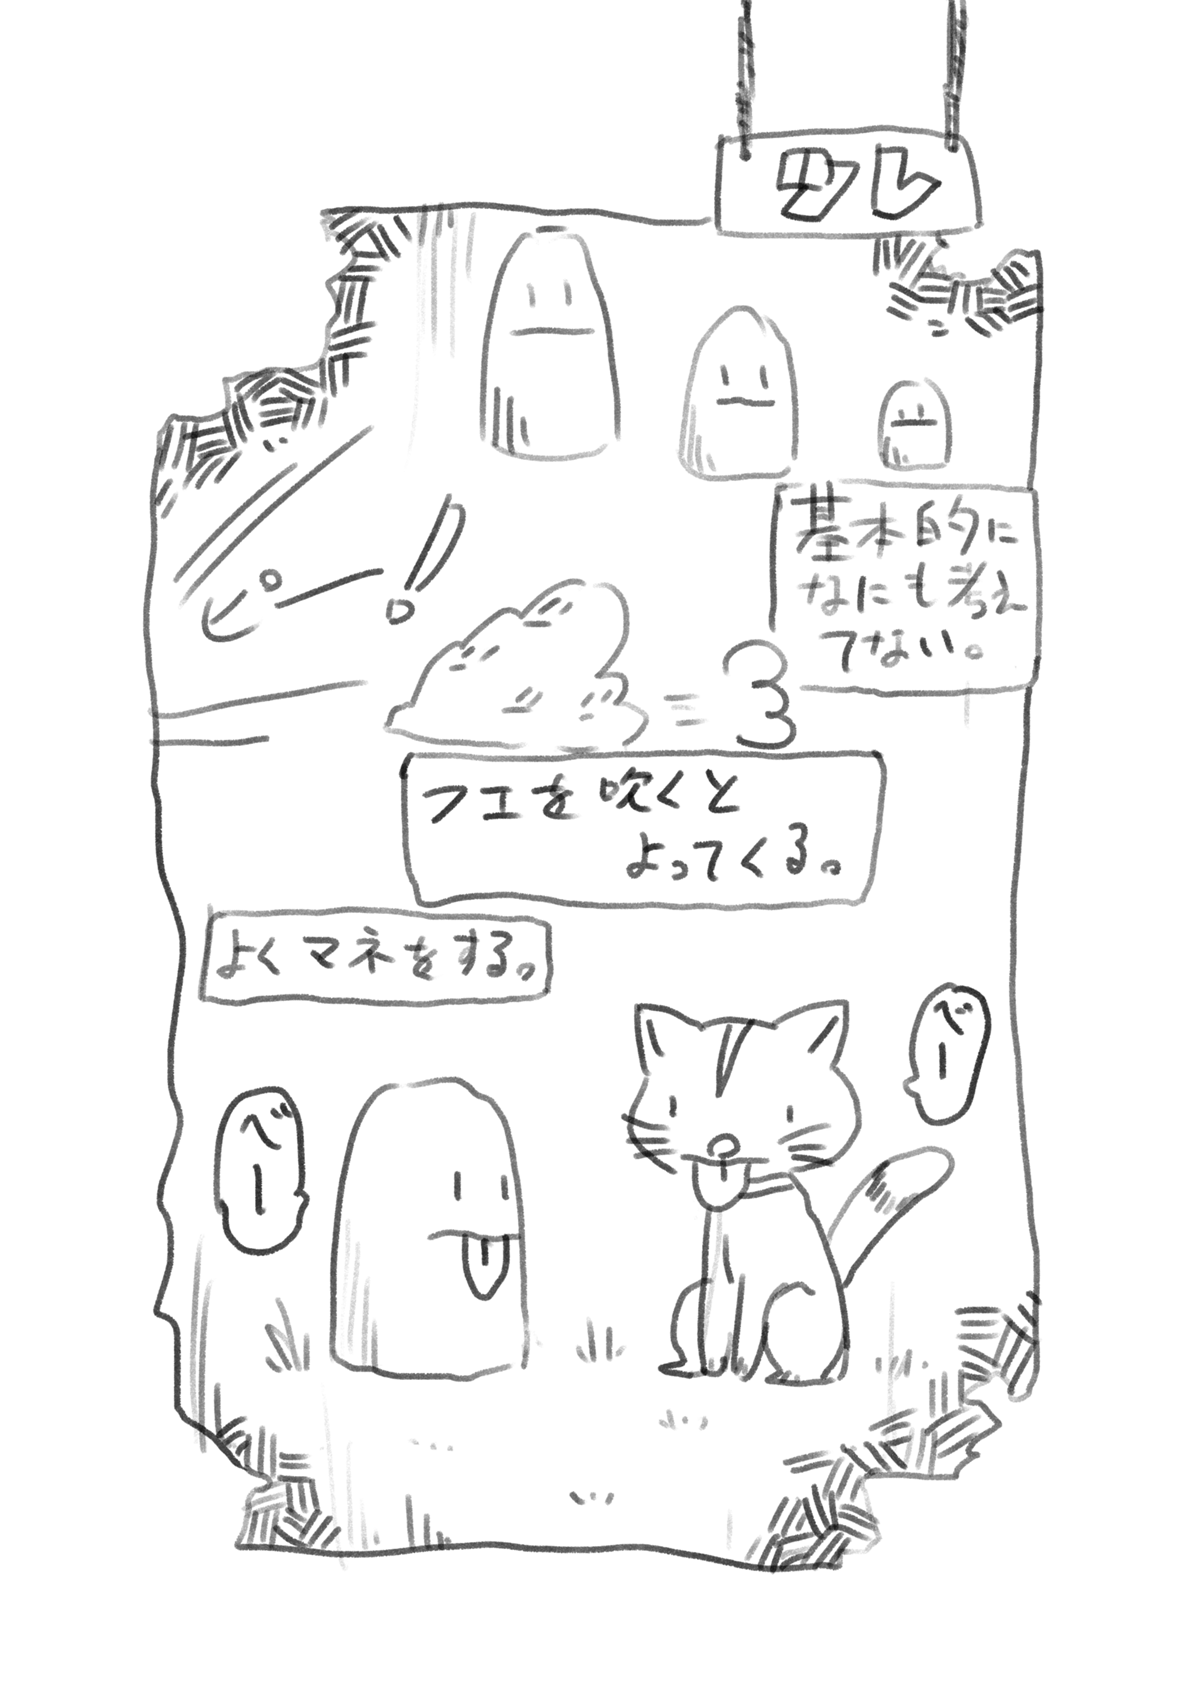 基本的に
なにも考え
てない。
ピー!
フエを吹くと
よってくる。
よくマネをする。
べー
べー